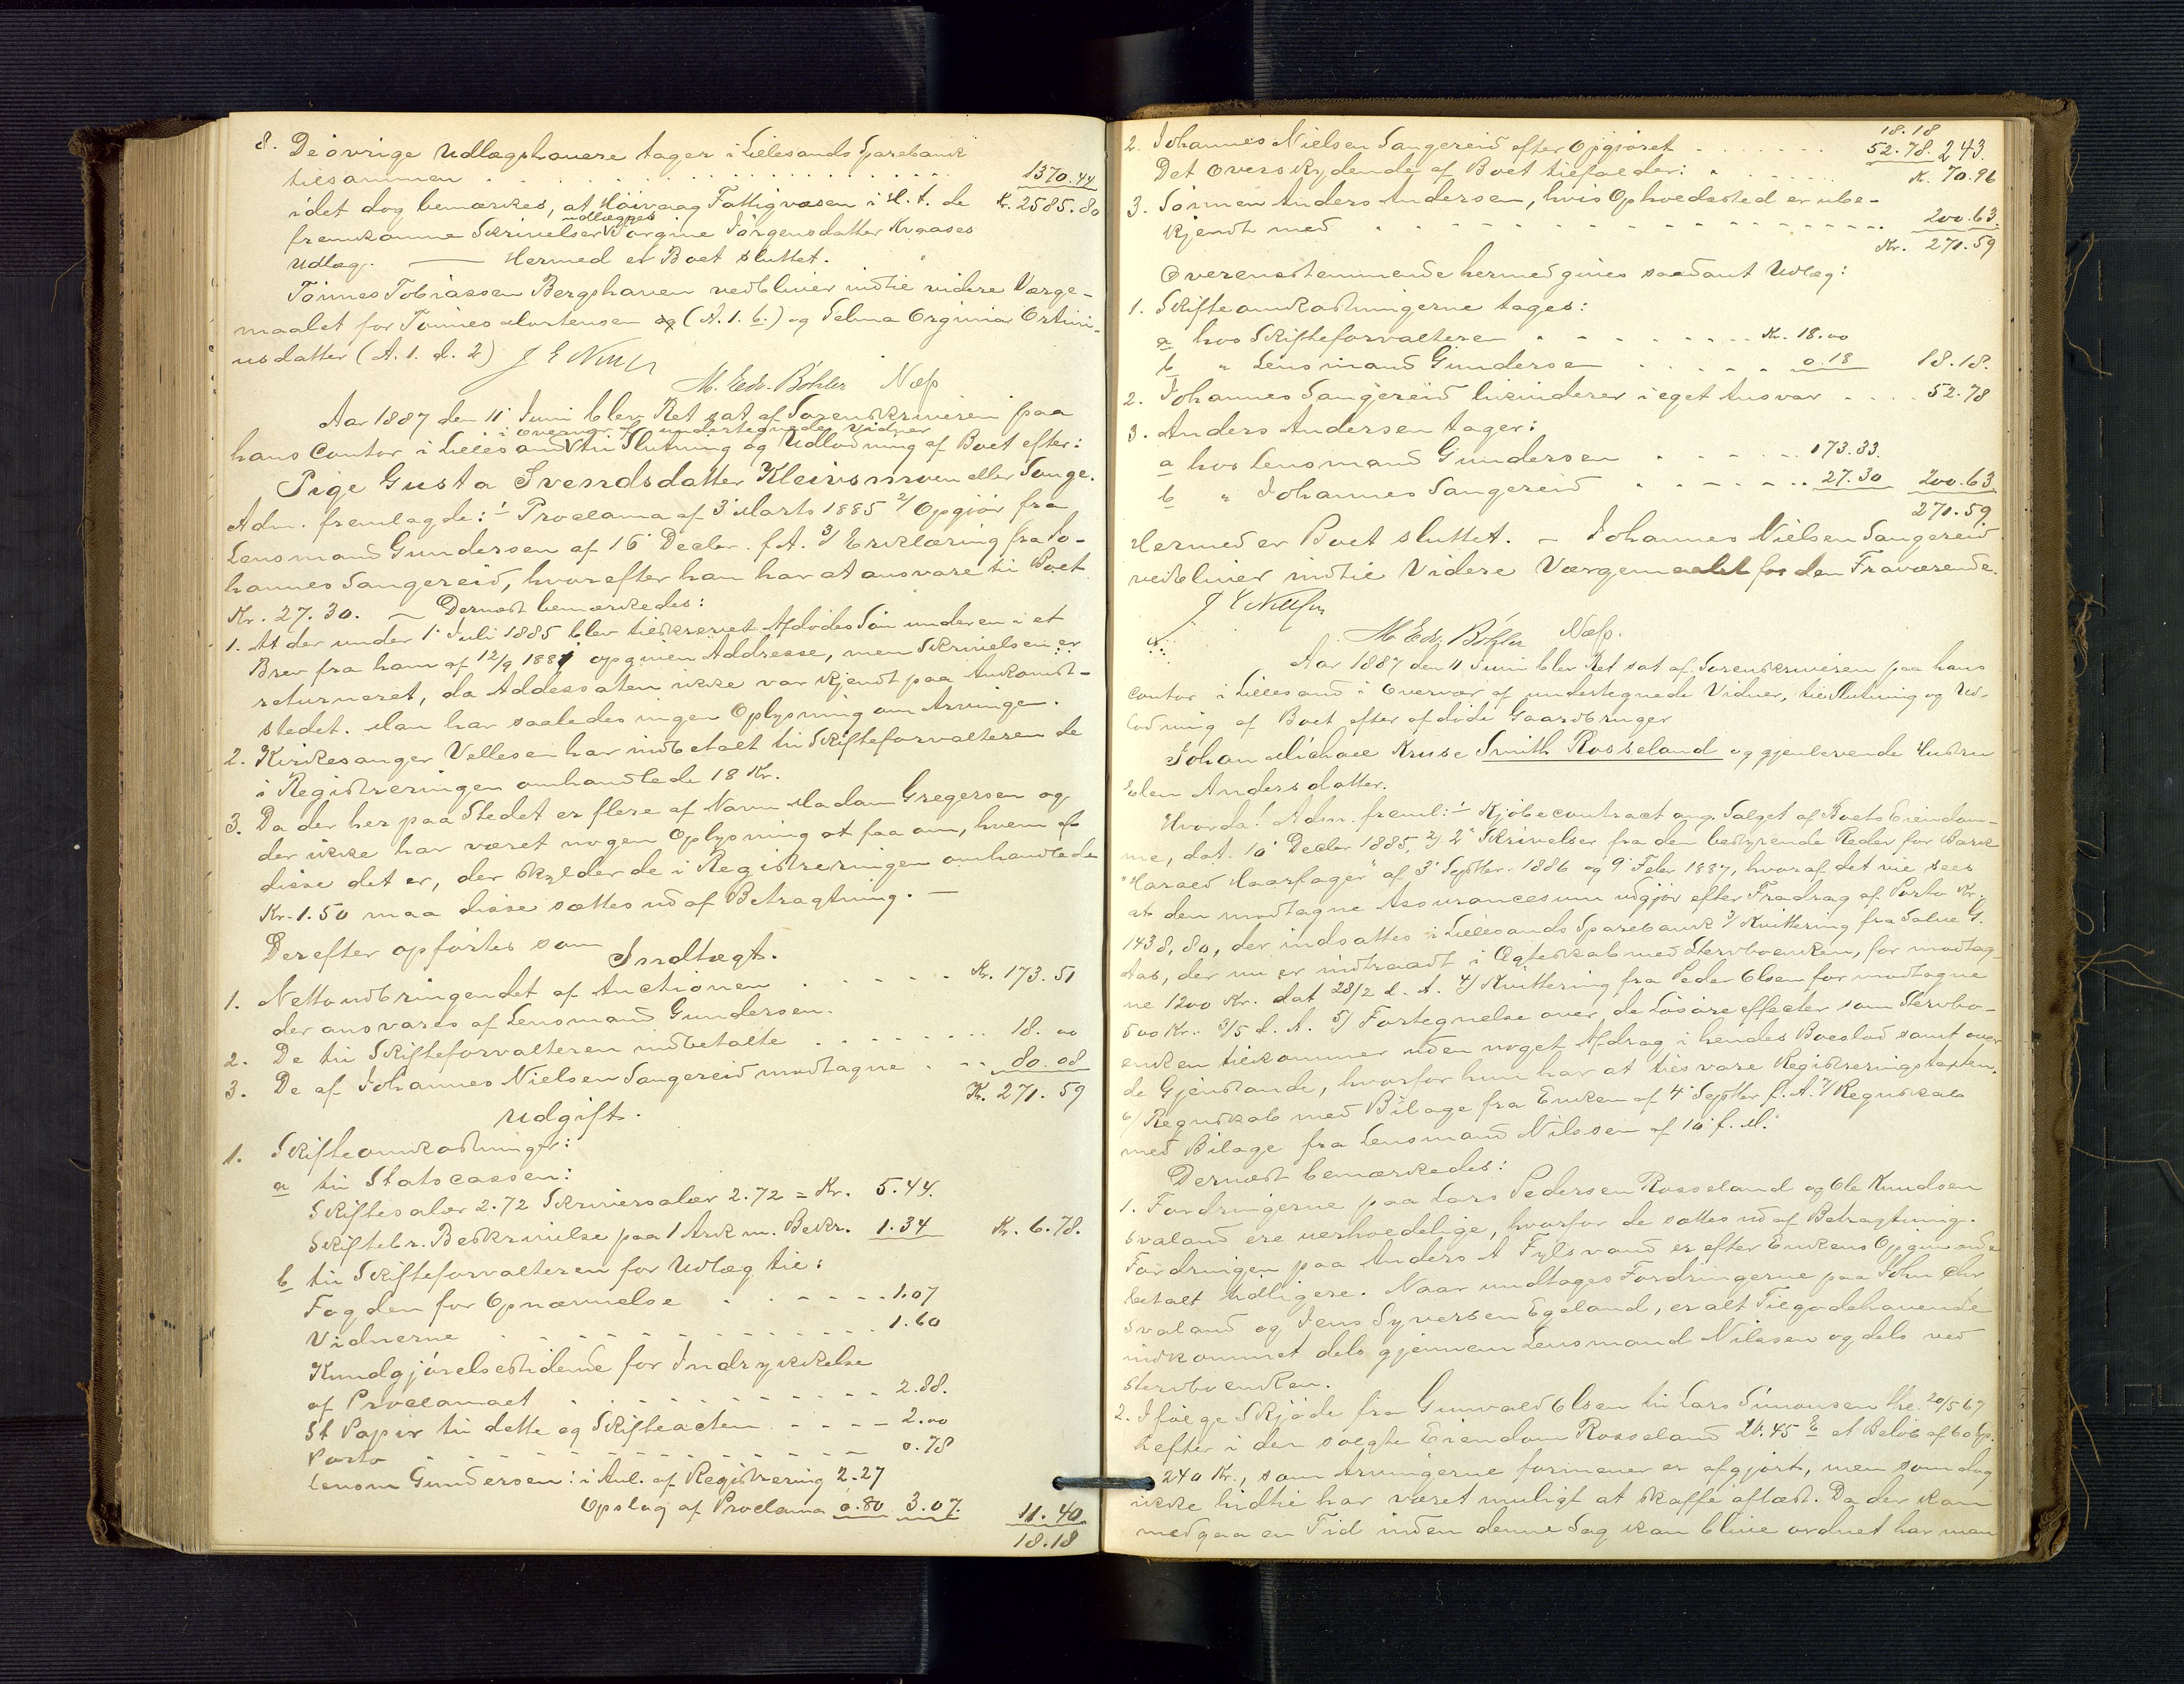 8. De øvrige Udlægshavere tager i Lillesands Sparebank
tilsammen . . . . . . . . . . 1370.44
idet dog bemærkes, at Høivaag Fattigvæsen i H. t. de Kr. 2585.80
fremkomne Skrivelser udlægges Jørgine Jørgensdatter Kraases
Udlæg. — Hermed er Boet sluttet.
Tønnes Tobiassen Bergshaven vedbliver indtil videre Værge-
maalet for Tønnes Mortensen (A. 1. b.) og Selma Orginia Ortini-
usdatter (A. 1. d. 2)
M. Edv. Bøhler Næss
Aar 1887 den 11 Juni blev Ret sat af Sorenskriveren paa
hans Contor i Lillesand i Overvær af undertegnede Vidner til Slutning og Udlodning af Boet efter:
Pige Gusta Svendsdatter Kleivsmoen eller Sange.
Adm. fremlagde: 1/ Proclama af 3 Marts 1885 2/ Opgjør fra
Lensmand Gundersen af 16 Decbr. f. A. 3/ Erklæring fra Jo-
hannes Sangereid, hvorefter han har at ansvare til Boet
Kr. 27.30. — Dernæst bemærkedes:
1. At der under 1 Juli 1885 blev tilskrevet Afdødes Søn under en i et
Brev fra ham af 12/9 1884 opgiven Addresse, men Skrivelsen er
returneret, da Addressaten ikke var kjendt paa Ankomst-
stedet. Man har saaledes ingen Oplysning om Arvinge.
2. Kirkesanger Vellesen har indbetalt til Skifteforvalteren de
i Registreringen omhandlede 18 Kr.
3. Da der her paa Stedet er flere af Navn Madam Gregersen og
der ikke har været nogen Oplysning at faa om, hvem af
disse det er, der skylder de i Registreringen omhandlede
Kr. 1.50 maa disse sættes ud af Betragtning. —
Derefter opførtes som
Indtægt.
1. Nettoudbringendet af Auctionen . . . . Kr. 173.51
der ansvares af Lensmand Gundersen.
2. De til Skifteforvalteren indbetalte . . . . . . 18.00
3. De af Johannes Nielsen Sangereid modtagne . . . 80.08
Kr. 271.59
Udgift.
1. Skifteomkostninger:
a til Statscassen:
Skiftesalær 2.72 Skriversalær 2.72 = Kr. 5.44.
Skiftebr. Beskrivelse paa 1 Ark m. Bekr. 1.34 Kr. 6.78.
b til Skifteforvalteren for Udlæg til:
Fogden for Opnævnelse . . . . . 1.07
Vidnerne . . . . . . . . . 1.60
Kundgjørelsestidende for Indrykkelse
af Proclamaet . . . . . . . 2.88.
St Papir til dette og Skifteacten . . . . 2.00
Porto . . . . . . . . . 0.78
Lensm Gundersen: i Anl. af Registrering 2.27
Opslag af Proclama 0.80 3.07. 11.40
18.18
18.18
2. Johannes Nielsen Sangereid efter Opgjøret . . . . . . 52.78. 243.
Det Overskydende af Boet tilfalder: . . . . . Kr. 70.96
3. Sønnen Anders Andersen, hvis Opholdssted er ube-
kjendt med . . . . . . . . . . . 200.63.
Kr. 271.59
Overensstemmende hermed gives saadant Udlæg:
1. Skifteomkostningerne tages:
a hos Skifteforvalteren . . . . . . Kr. 18.00
b " Lensmand Gundersen . . . . . 0.18 18.18.
2. Johannes Sangereid likviderer i eget Ansvar . . . . 52.78
3. Anders Andersen tager:
a hos Lensmand Gundersen . . . . . 173.33.
b " Johannes Sangereid . . . . . . 27.30 200.63
271.59.
Hermed er Boet sluttet. — Johannes Nielsen Sangereid
vedbliver indtil Videre Værgemaalet for den Fraværende.
M Edv. Bøhler Næss.
Aar 1887 den 11 Juni blev Ret sat af Sorenskriveren paa hans
Contor i Lillesand i Overvær af undertegnede Vidner, til Slutning og Ud-
lodning af Boet efter afdøde Gaardbruger
Johan Michael Kruse Smith Rosseland og gjenlevende Hustru
Elen Andersdatter.
Hvorda! Adm. freml: 1/ Kjøbecontract ang. Salget af Boets Eiendom-
me, dat. 10 Decbr 1885, 2/ 2 Skrivelser fra den bestyrende Reder for Bark
"Harald Haarfager" af 3 Septbr. 1886 og 9 Febr 1887, hvoraf det vil sees
at den modtagne Assurancesum udgjør efter Fradrag af Porto Kr.
1438,80, der indsattes i Lillesands Sparebank 3/ Kvittering fra Salve G.
Aas, der nu er indtraadt i Ægteskab med Stervboenken, for modtag-
ne 1200 Kr. dat 28/2 d. A. 4/ Kvittering fra Peder Olsen for modtagne
500 Kr. 3/5 d. A. 5/ Fortegnelse over de Løsøreeffecter som Stervbo-
enken tilkommer uden noget Afdrag i hendes Boeslod samt over
de Gjenstande, hvorfor hun har at tilsvare Registreringstaxten.
6/ Regnskab med Bilage fra Enken af 4 Septbr f. A. 7/ Regnskab
med Bilage fra Lensmand Nilssen af 10 f. M.
Dernæst bemærkedes:
1. Fordringerne paa Lars Pedersen Rosseland og Ole Knudsen
Svaland ere uerholdelige, hvorfor de sættes ud af Betragtning.
Fordringen paa Anders A Fylsvand er efter Enkens Opgivende
betalt tidligere. Naar undtages Fordringerne paa John Chr
Svaland og Jens Syversen Egeland, er alt Tilgodehavende
indkommet dels gjennem Lensmand Nilssen og dels ved
Stervboenken.
2. Ifølge Skjøde fra Gunvald Olsen til Lars Simonsen thl. 20/5 67
hefter i den solgte Eiendom Rosseland 26.45 b et Beløb af 60 Sp.
240 Kr., som Arvingerne formener er afgjort, men som dog
ikke hidtil har været muligt at skaffe aflæst. Da der kan
medgaa en Tid inden denne Sag kan blive ordnet har man